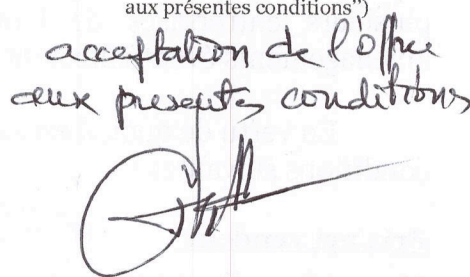 aux présentes conditions")
acceptation de l'offre
aux presentes conditions